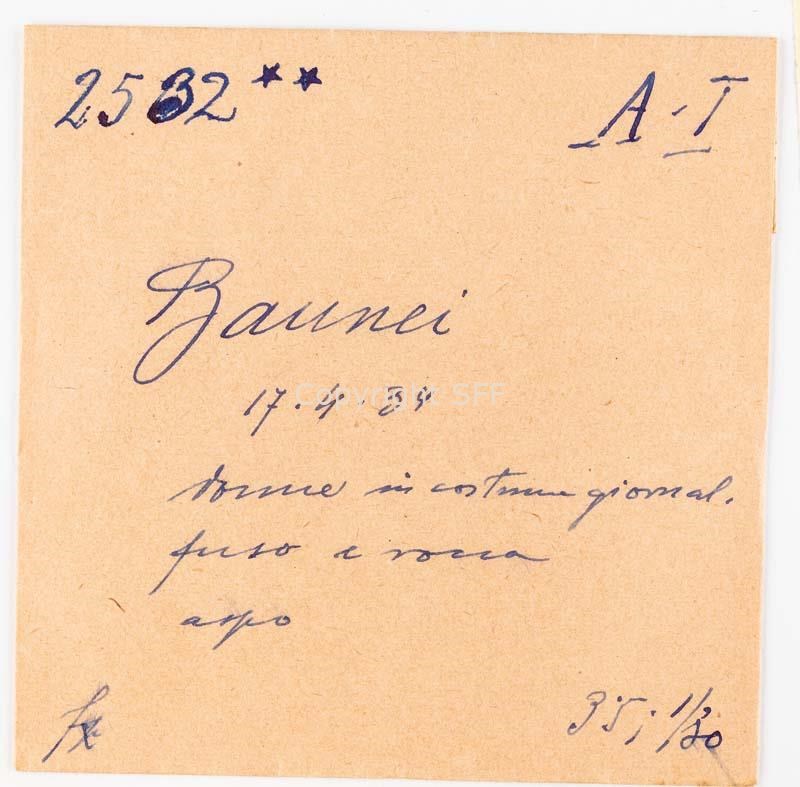 2532** A.T
Baunei
17.4.34
Copyright SFF
donne in costume giornal.
fuso e rocca
aspo
fx 3'5; 1/30